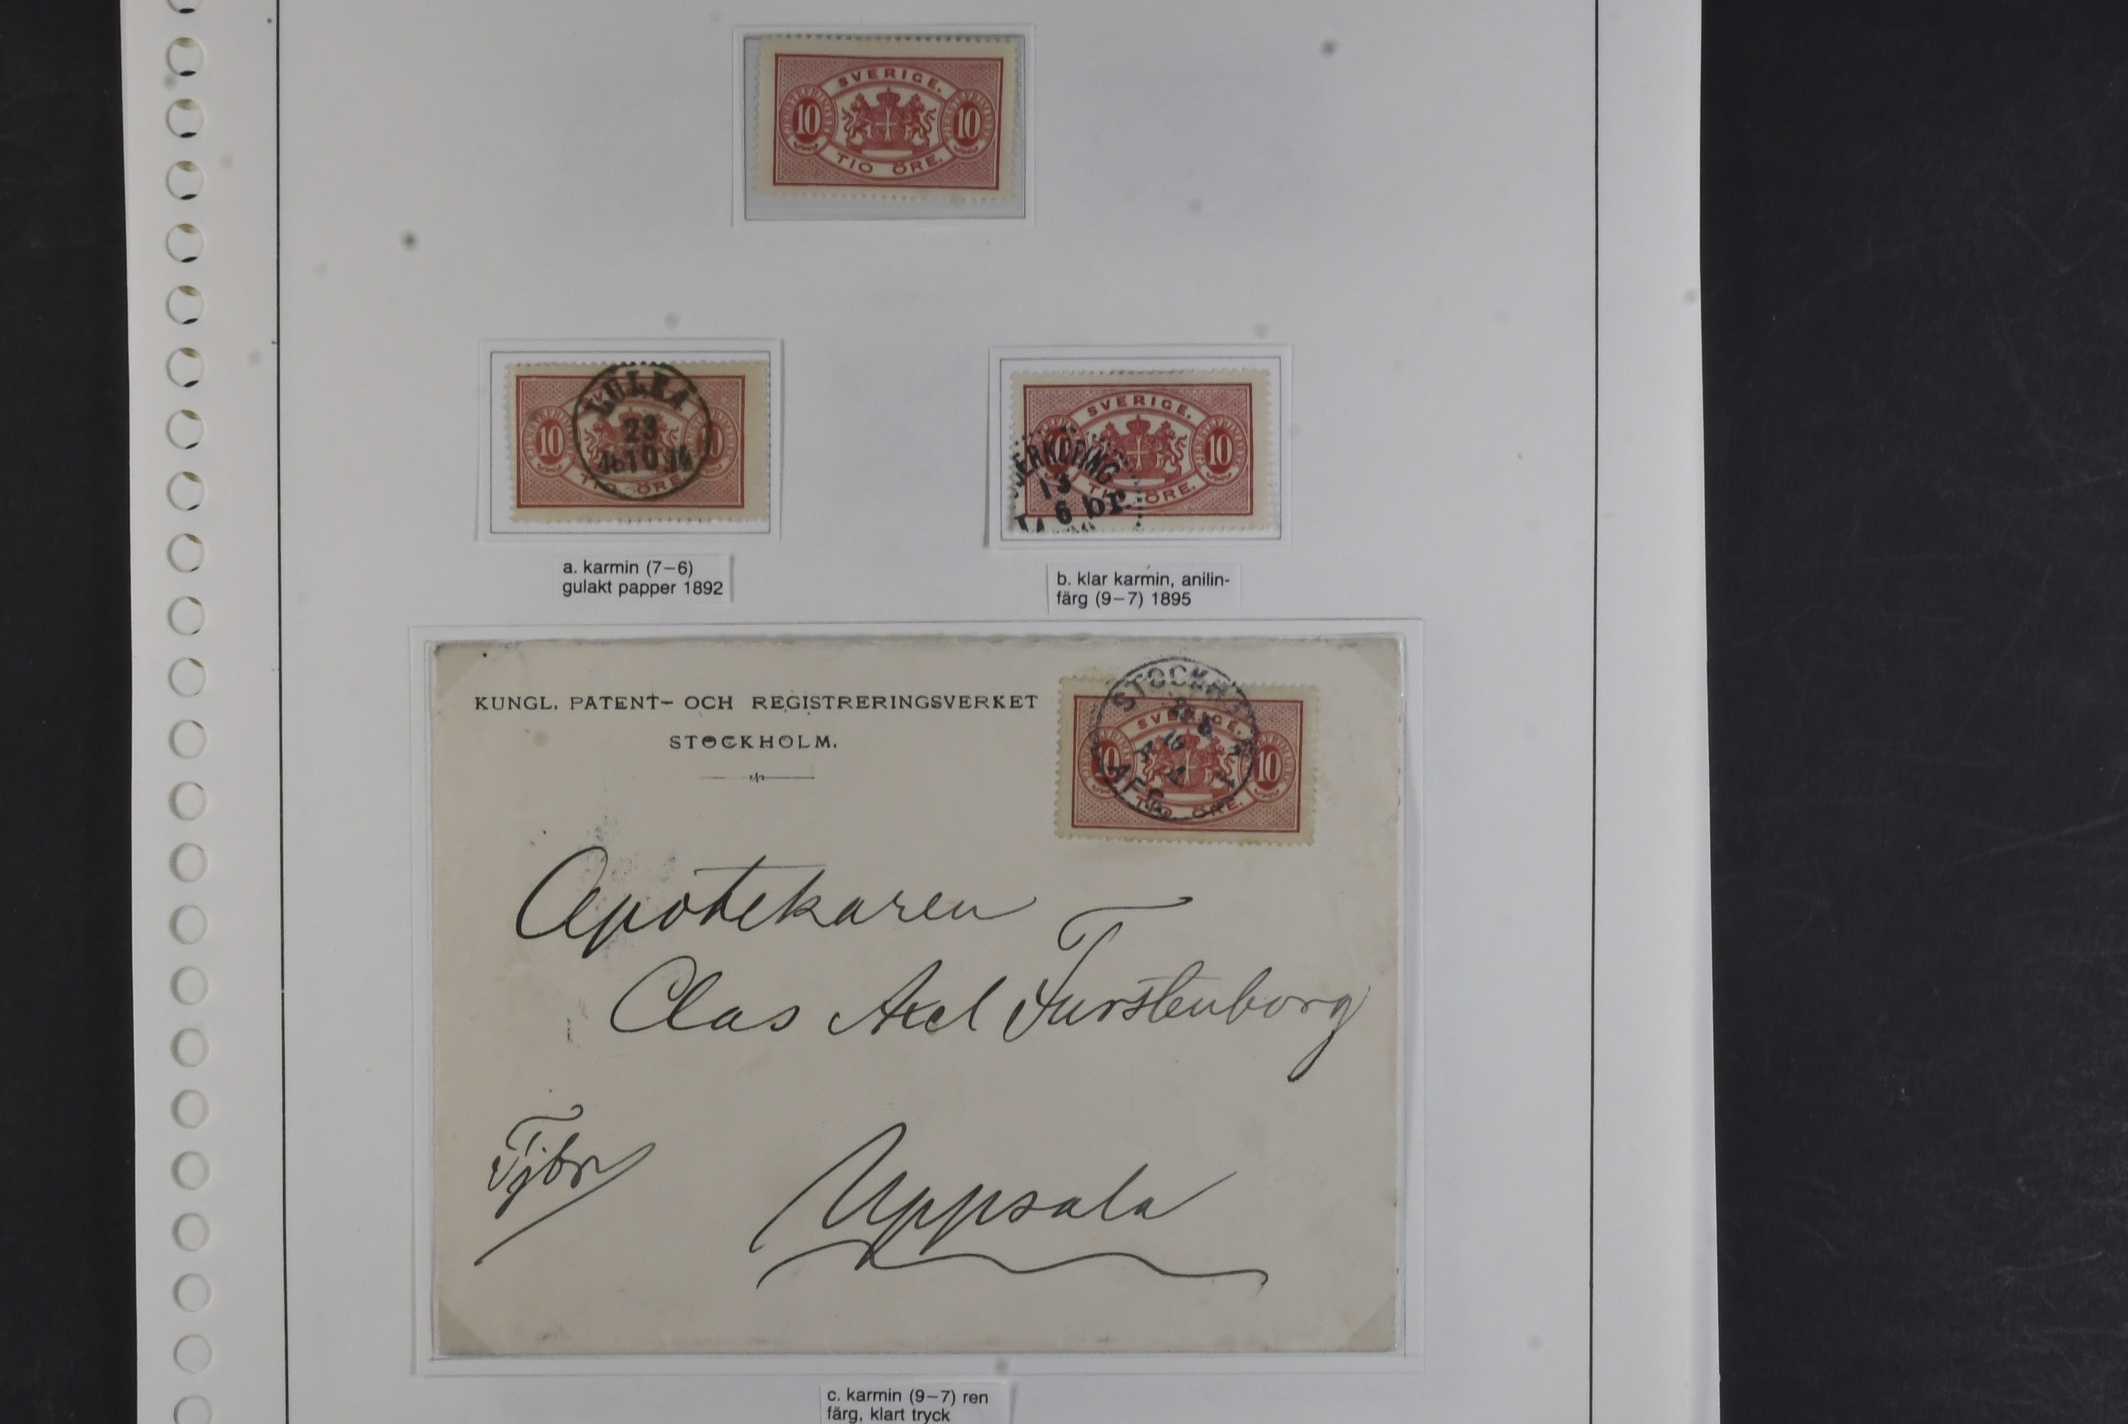 SVERIGE.
10 10
TIO ÖRE.
LULEÅ
23
10
10
TIO ÖRE.
SVERIGE.
10
TIO ÖRE.
13
6 br.
a. karmin (7–6)
gulakt papper 1892
b. klar karmin, anilin-
färg (9–7) 1895
KUNGL. PATENT- OCH REGISTRERINGSVERKET
STOCKHOLM.
SVERIGE.
10 10
TIO ÖRE.
Apotekaren
Clas Axel Furstenborg
Tjbr
Uppsala
c. karmin (9–7) ren
färg, klart tryck